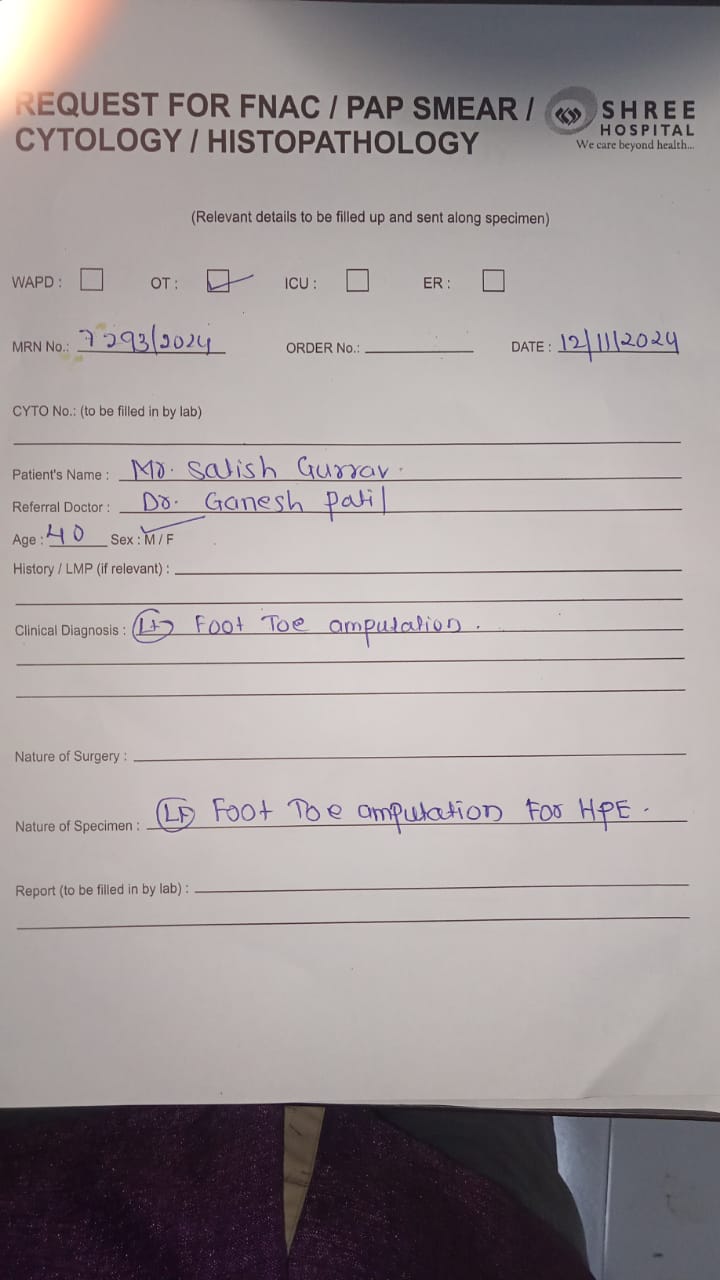 REQUEST FOR FNAC / PAP SMEAR /
CYTOLOGY / HISTOPATHOLOGY
SHREE
HOSPITAL
We care beyond health...
(Relevant details to be filled up and sent along specimen)
WAPD : OT : ICU : ER :
MRN No.: 7293/2024 ORDER No.: DATE : 12/11/2024
CYTO No.: (to be filled in by lab)
Patient's Name : Mr. Satish Gurrav.
Referral Doctor : Dr. Ganesh Patil
Age : 40 Sex : M / F
History / LMP (if relevant) :
Clinical Diagnosis : Lt Foot Toe amputation.
Nature of Surgery :
Nature of Specimen : Foot Toe amputation For HPE.
Report (to be filled in by lab) :